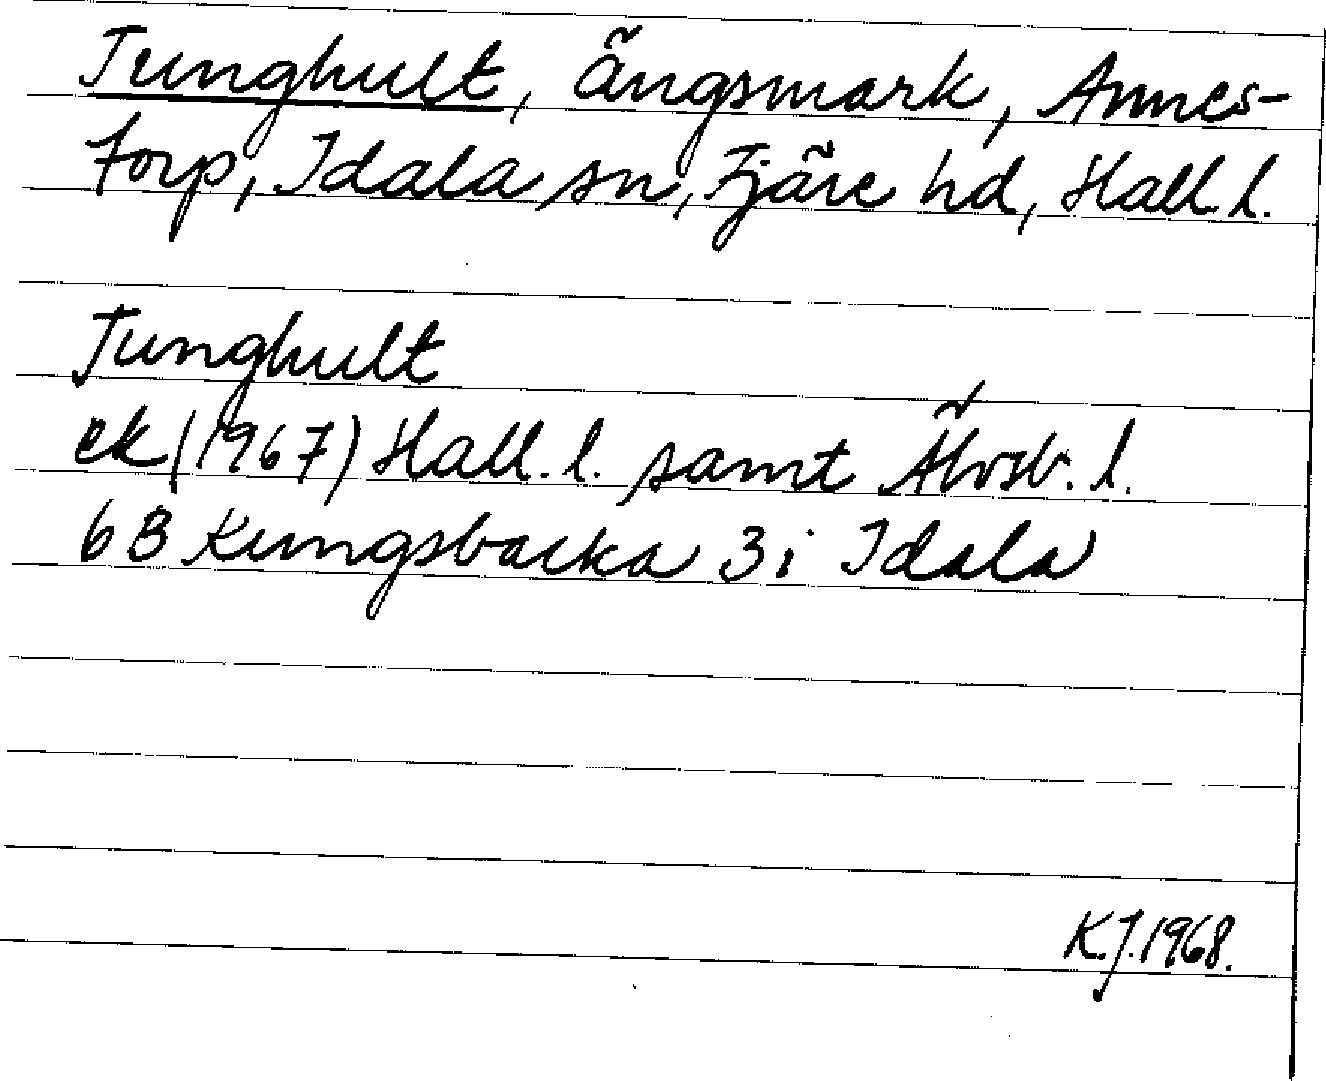 Tunghult, ängsmark, Annes-
torp, Idala sn, Fjäre hd, Hall. l.
Tunghult
ek (1967) Hall. l. samt Älvsb. l.
6B Kungsbacka 3i Idala
K.J. 1968.